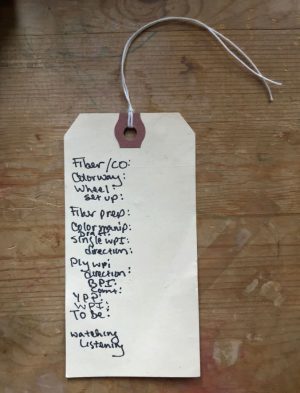 Fiber/CO:
Colorway:
Wheel:
set up:
Fiber prep:
Color manip:
Draft:
Single WPI:
direction:
Ply wpi
direction:
BPI:
count:
YPP:
WPI:
To be:
watching
Listening